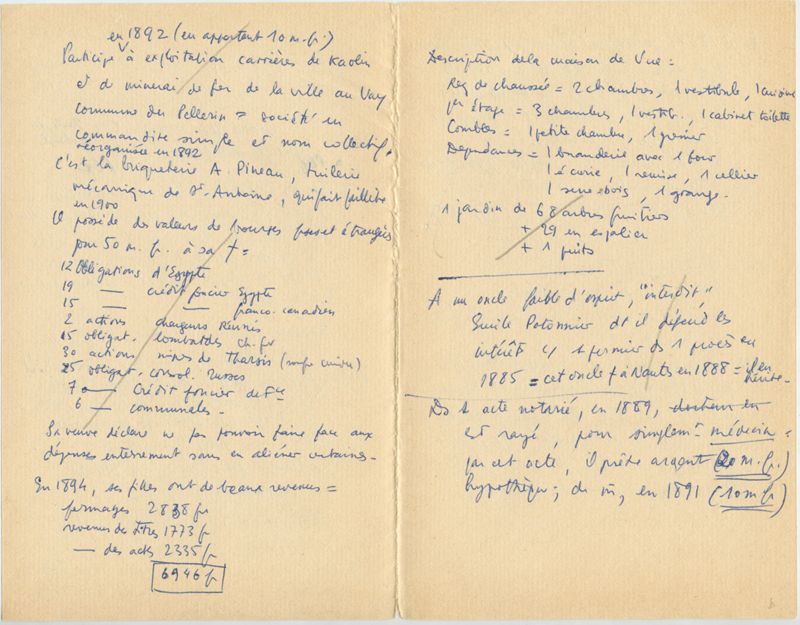 en 1892 (en apportant 10 m. fr.)
Participe à exploitation carrières de kaolin
et de minerai de fer de la ville au Vay
commune du Pellerin = société en
commandite simple et nom collectif.
réorganisée en 1892
C'est la briqueterie A. Pineau, tuilerie
mécanique de St-Antoine, qui fait faillite
en 1900
Il possède des valeurs de bourses frses et étrangères
pour 50 m. fr. à sa † =
12 Obligations d'Egypte
19 — Crédit foncier Egypte
15 — — franco-canadien
2 actions chargeurs Réunis
15 obligat. lombardes ch. fer
30 actions mines de Tharsis (soufre cuivre)
25 obligat. consol. russes
7 — Crédit foncier de Fce
6 — communales -
Sa veuve déclare ne pas pouvoir faire face aux
dépenses enterrement sans en aliéner certaines -
En 1894, ses filles ont de beaux revenus =
fermages 2838 fr
revenus des titres 1773 fr
— des acts 2335 fr
6946 fr
Description de la maison de Vue =
Rez de chaussée = 2 chambres, 1 vestibule, 1 cuisine
1er étage = 3 chambres, 1 vestib., 1 cabinet toilette
Combles = 1 petite chambre, 1 grenier
Dependances = 1 buanderie avec 1 four
1 écurie, 1 remise, 1 cellier
1 serre à bois, 1 grange.
1 jardin de 68 arbres fruitiers
+ 29 en espalier
+ 1 puits
A un oncle faible d'esprit, "interdit",
Emile Potonnier dt il défend les
intérêts c/ 1 fermier ds 1 procès en
1885 = cet oncle † à Nantes en 1888 = il en
hérite -
Ds 1 acte notarié, en 1889, docteur en
est rayé, pour simplemt médecin =
par cet acte, il prête argent (20 m. fr.)
hypothèque; de m, en 1891 (10 m. fr)